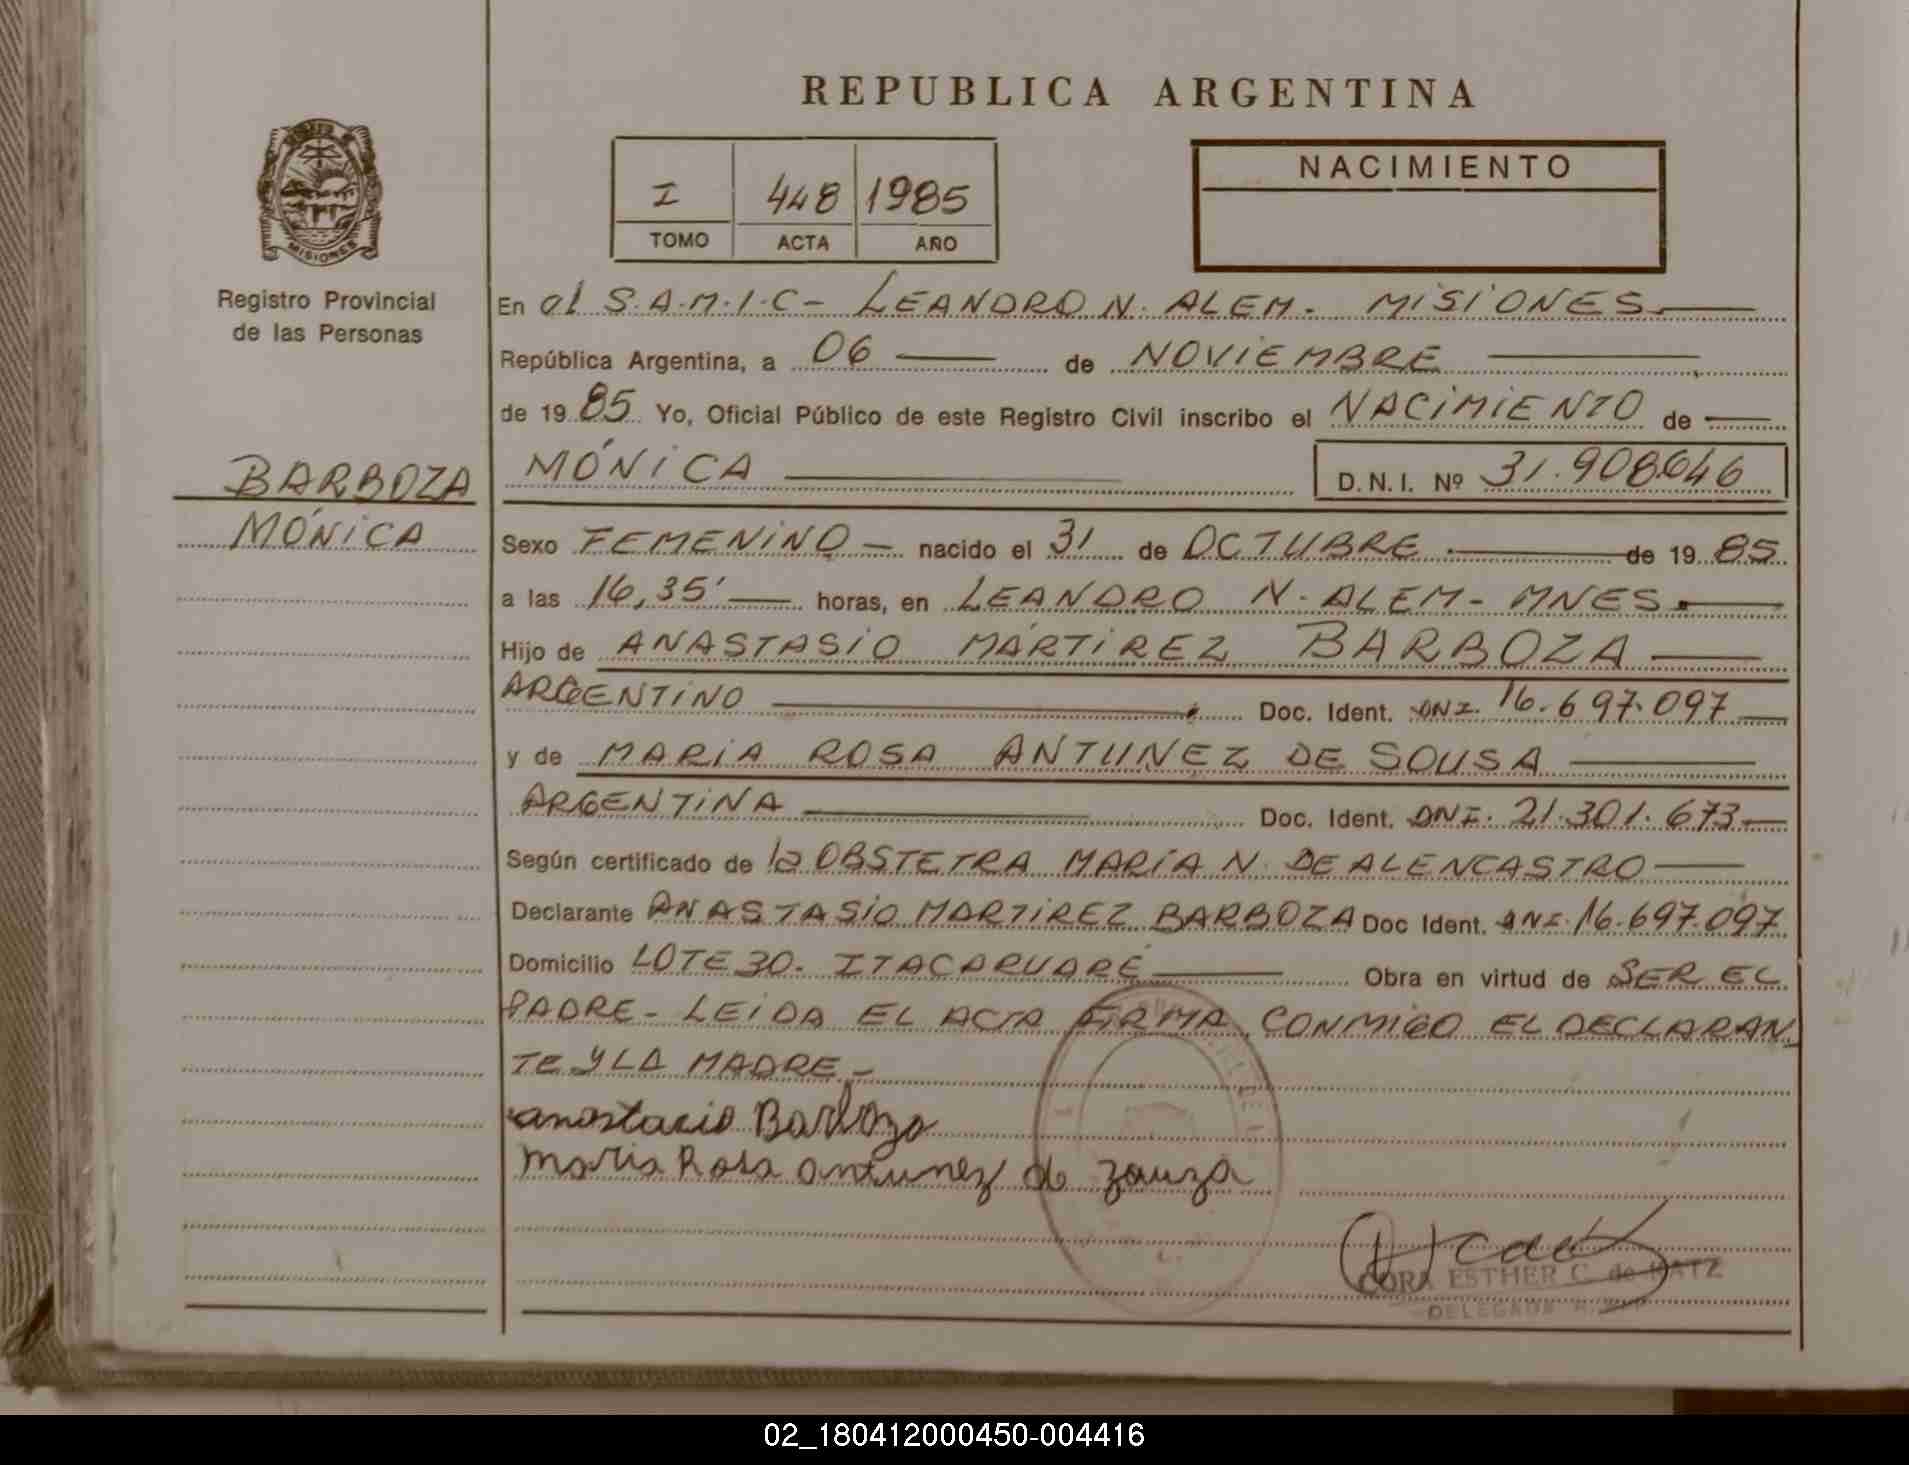 REPUBLICA ARGENTINA
MISIONES
Registro Provincial
de las Personas
I 448 1985
TOMO ACTA AÑO
NACIMIENTO
En el S.A.M.I.C - LEANDRO N. ALEM. MISIONES
República Argentina, a 06 de NOVIEMBRE
de 1985 Yo, Oficial Público de este Registro Civil inscribo el NACIMIENTO de
BARBOZA
MÓNICA
MÓNICA D.N.I. Nº 31.908.646
Sexo FEMENINO - nacido el 31 de OCTUBRE de 1985
a las 16,35' horas, en LEANDRO N. ALEM - MNES.
Hijo de ANASTASIO MARTIREZ BARBOZA
ARGENTINO Doc. Ident. DNI. 16.697.097
y de MARIA ROSA ANTUNEZ DE SOUSA
ARGENTINA Doc. Ident. DNI. 21.301.673
Según certificado de la OBSTETRA MARÍA N. DE ALENCASTRO
Declarante ANASTASIO MARTIREZ BARBOZA Doc Ident. DNI. 16.697.097
Domicilio LOTE 30. ITACARUARÉ Obra en virtud de SER EL
PADRE - LEIDA EL ACTA FIRMA CONMIGO EL DECLARAN
TE Y LA MADRE -
anastacio Barboza
Maria Rosa antunez de zauza
CORA ESTHER C. de KATZ
02_180412000450-004416